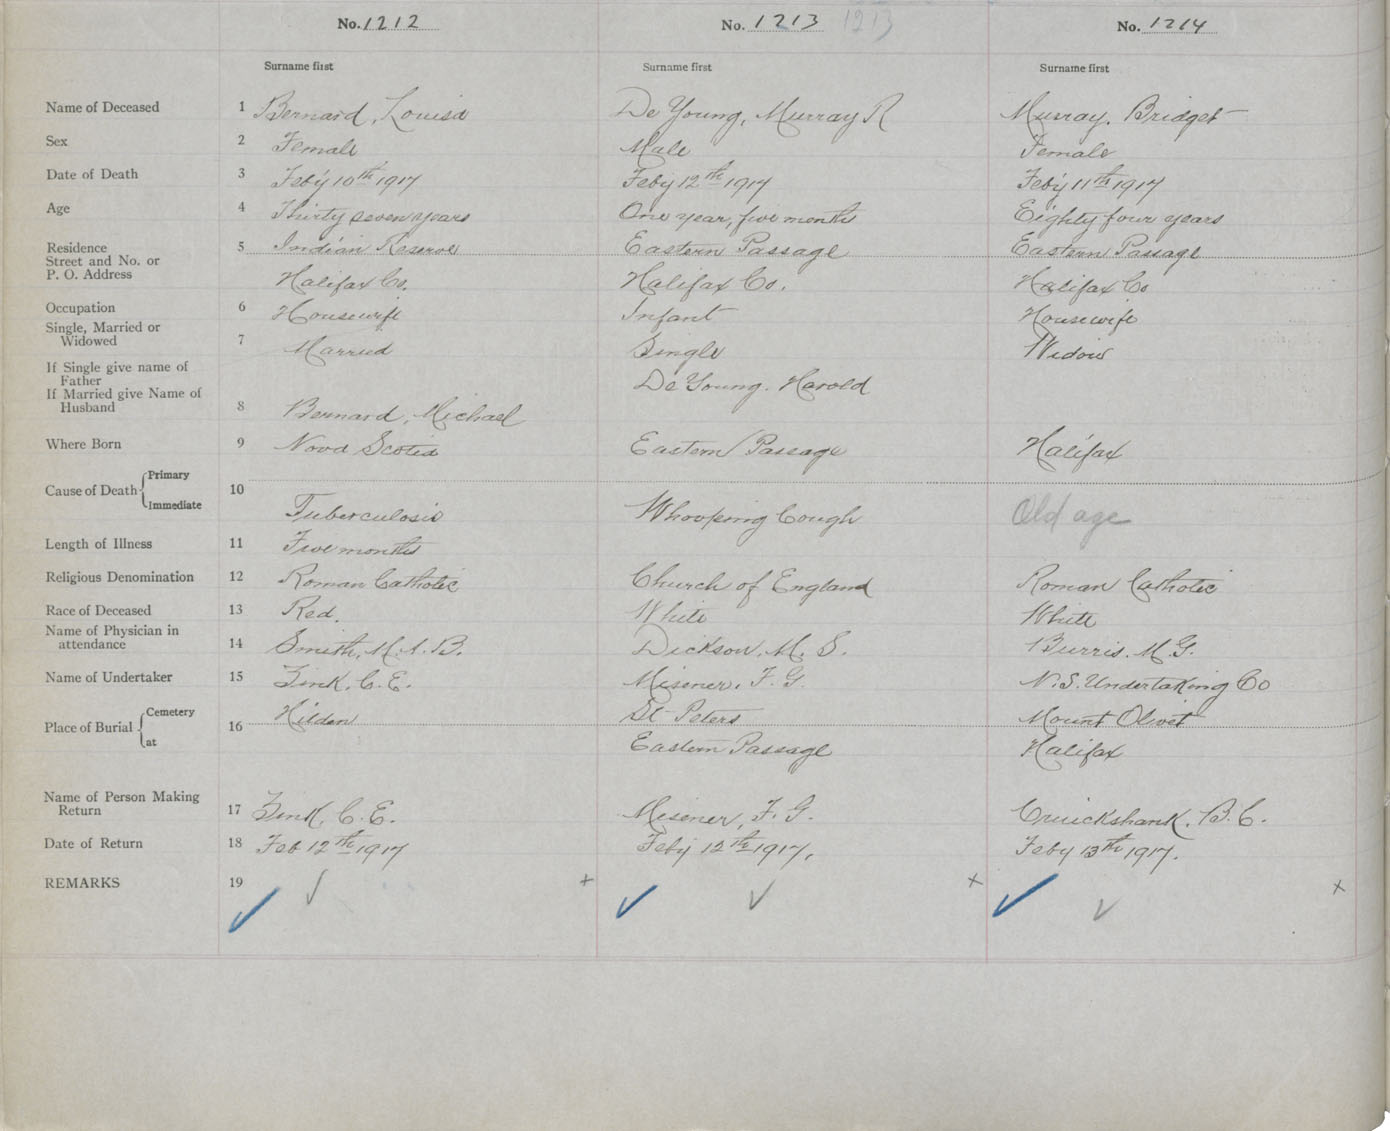 No. 1212 No. 1213 1213 No. 1214
Surname first Surname first Surname first
Name of Deceased 1 Bernard, Louisa De Young, Murray R Murray, Bridget
Sex 2 Female Male Female
Date of Death 3 Feb'y 10th 1917 Feb'y 12th 1917 Feb'y 11th 1917
Age 4 Thirty seven years One year, five months Eighty four years
Residence 5 Indian Reserve Eastern Passage Eastern Passage
Street and No. or
P. O. Address Halifax Co. Halifax Co. Halifax Co
Occupation 6 Housewife Infant Housewife
Single, Married or
Widowed 7 Married Single Widow
If Single give name of
Father De Young. Harold
If Married give Name of
Husband 8 Bernard, Michael
Where Born 9 Nova Scotia Eastern Passage Halifax
Primary
Cause of Death 10
Immediate Tuberculosis Whooping Cough Old age
Length of Illness 11 Five months
Religious Denomination 12 Roman Catholic Church of England Roman Catholic
Race of Deceased 13 Red. White White
Name of Physician in
attendance 14 Smith, M.A.B. Dickson, M. S. Burris. M.G.
Name of Undertaker 15 Zink. C.E. Misener, F.G. N.S. Undertaking Co
Cemetery Hilden St Peters Mount Olivet
Place of Burial 16
at Eastern Passage Halifax
Name of Person Making
Return 17 Zink, C.E. Misener, F.G. Cruickshank, B.C.
Date of Return 18 Feb 12th 1917 Feb'y 12th 1917. Feby 13th 1917.
REMARKS 19